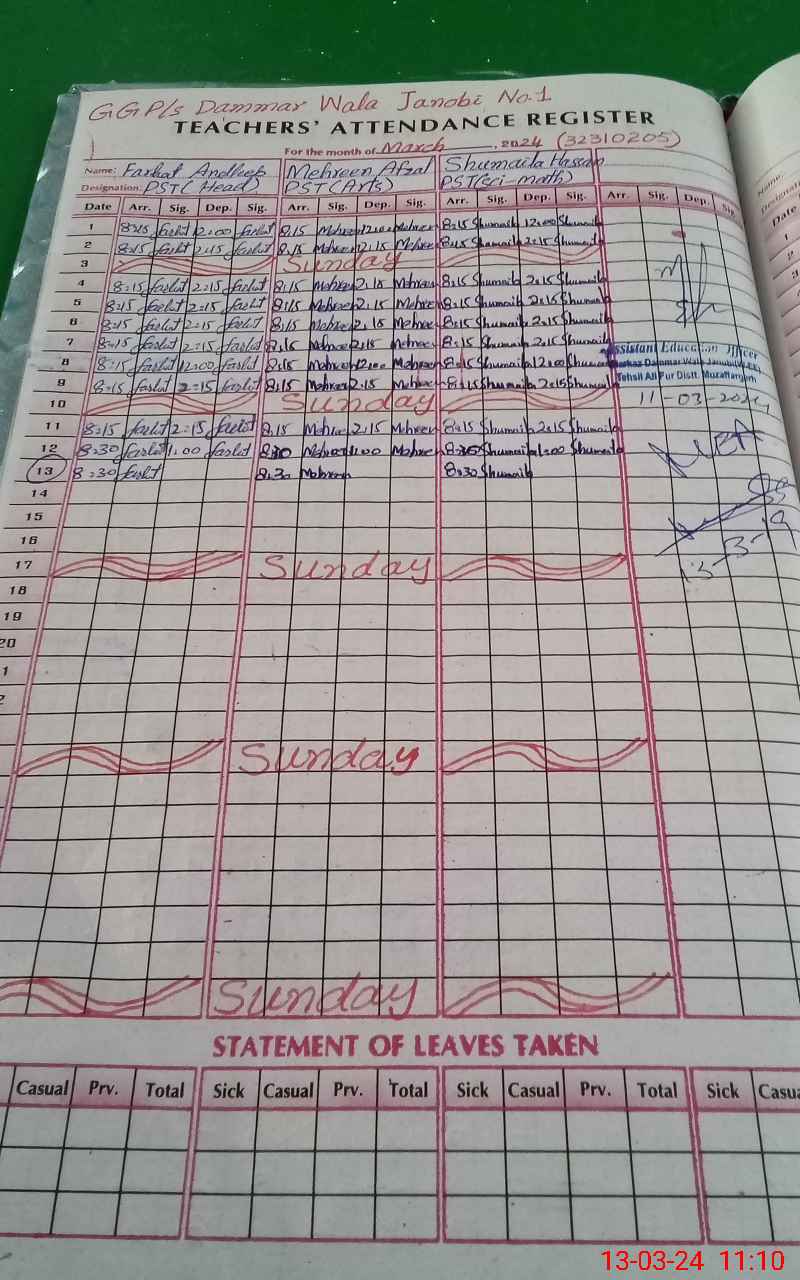 GGP/s Dammar Wala Janobi No.1
TEACHERS' ATTENDANCE REGISTER
For the month of March, 2024 (32310205)
Name: Farhat Andleep Mehreen Afzal Shumaila Hassan
Designation: PST (Head) PST (Arts) PST (Sci-math)
Date Arr. Sig. Dep. Sig. Arr. Sig. Dep. Sig. Arr. Sig. Dep. Sig. Arr. Sig. Dep. Sig
1 8:15 farhit 12:00 farhit 8:15 Mehreen 12:00 Mehreen 8:15 Shumaila 12:00 Shumaila
2 8:15 farhit 2:15 farhit 8:15 Mehreen 2:15 Mehreen 8:15 Shumaila 2:15 Shumaila
3 Sunday
4 8:15 farhit 2:15 farhit 8:15 Mehreen 2:15 Mehreen 8:15 Shumaila 2:15 Shumaila
5 8:15 farhit 2:15 farhit 8:15 Mehreen 2:15 Mehreen 8:15 Shumaila 2:15 Shumaila
6 8:15 farhit 2:15 farhit 8:15 Mehreen 2:15 Mehreen 8:15 Shumaila 2:15 Shumaila
7 8:15 farhit 2:15 farhit 8:15 Mehreen 2:15 Mehreen 8:15 Shumaila 2:15 Shumaila
8 8:15 farhit 12:00 farhit 8:15 Mehreen 12:00 Mehreen 8:15 Shumaila 12:00 Shumaila
9 8:15 farhit 2:15 farhit 8:15 Mehreen 2:15 Mehreen 8:15 Shumaila 2:15 Shumaila
Assistant Education Officer
Markaz Dammar Wala Janubi
Tehsil Ali Pur Distt. Muzaffargarh
10 Sunday 11-03-2024
11 8:15 farhit 2:15 farhit 8:15 Mehreen 2:15 Mehreen 8:15 Shumaila 2:15 Shumaila
12 8:30 farhit 1:00 farhit 8:30 Mehreen 1:00 Mehreen 8:30 Shumaila 1:00 Shumaila
MEA
13 8:30 farhit 8:30 Mehreen 8:30 Shumaila
14
15
16
17 Sunday
18
19
20
1
2
Sunday
Sunday
STATEMENT OF LEAVES TAKEN
Casual Prv. Total Sick Casual Prv. Total Sick Casual Prv. Total Sick Casu
Name:
Designatio
Date
1
2
3
13-03-24 11:10